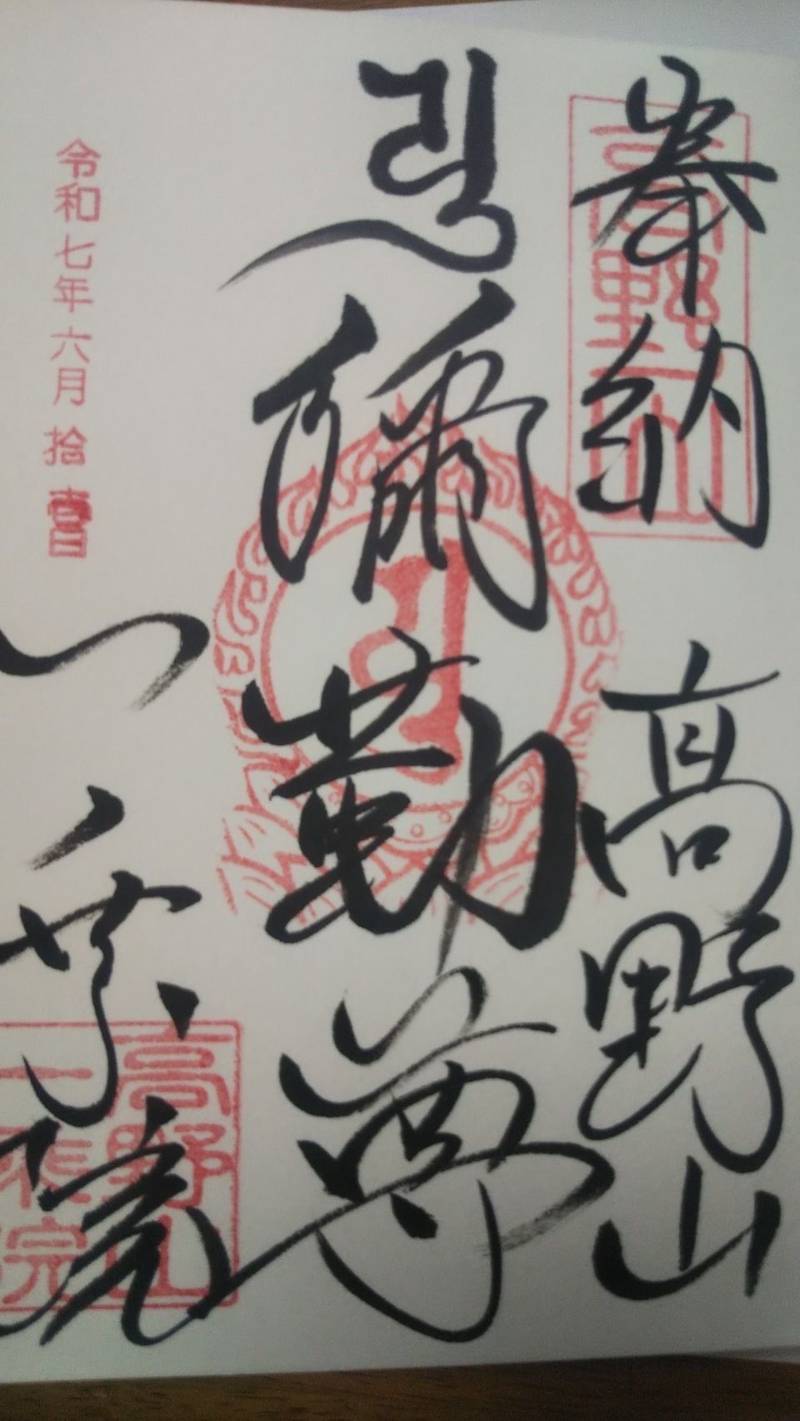 奉納 高野山
高野山
弥勒尊
一乗院
高野山
一乗院
令和七年六月拾